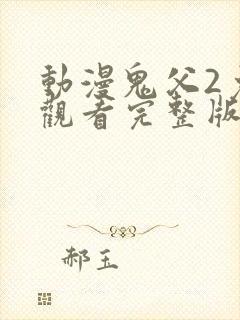 動漫鬼父2
觀看完整版
郝玉